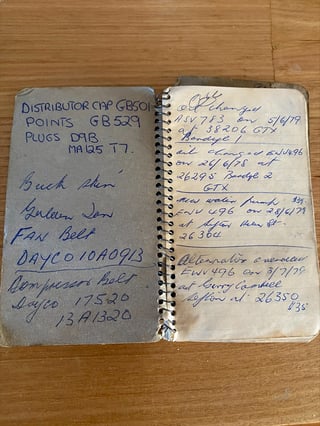 DISTRIBUTOR CAP GB501
POINTS GB529
PLUGS D9B
MA125 T7.
Buck skin
Golden Tan
FAN Belt
DAYCO 10A0913
Compressor Belt
Dayco 17520
13A1320
Oil changed
on 5/6/79
at 38206 GTX
oil changed ENV496
on 26/6/78 at
26295
GTX
new water pump
ENV 496 on 28/6/79
at
26304
Alternator overhaul
ENV 496 on 3/7/79
at Gerry Campbell
at 26350
$35